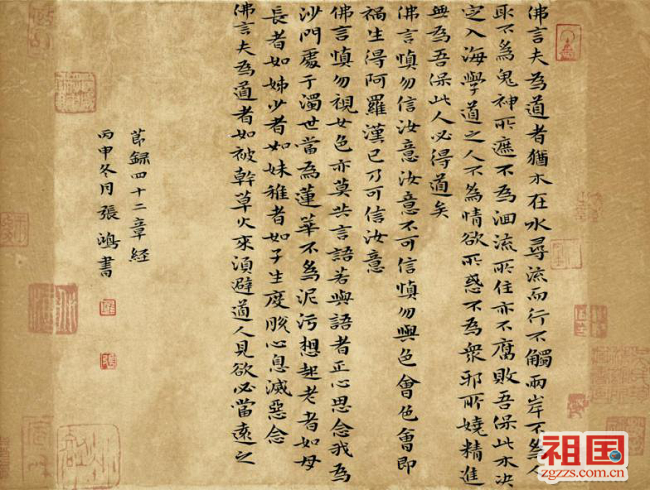 佛言夫為道者猶木在水尋流而行不觸兩岸不為人
取不為鬼神所遮不為洄流所住亦不腐敗吾保此木决
定入海學道之人不為情欲所惑不為衆邪所嬈精進
無為吾保此人必得道矣
佛言慎勿信汝意汝意不可信慎勿與色會色會即
禍生得阿羅漢已乃可信汝意
佛言慎勿視女色亦莫共言語若與語者正心思念我為
沙門處于濁世當為蓮華不為泥污想起老者如母
長者如姊少者如妹稚者如子生度脫心息滅惡念
佛言夫為道者如被幹草火來須避道人見欲必當遠之
節録四十二章經
丙申冬月張鴻書
祖国
zgzzs.com.cn